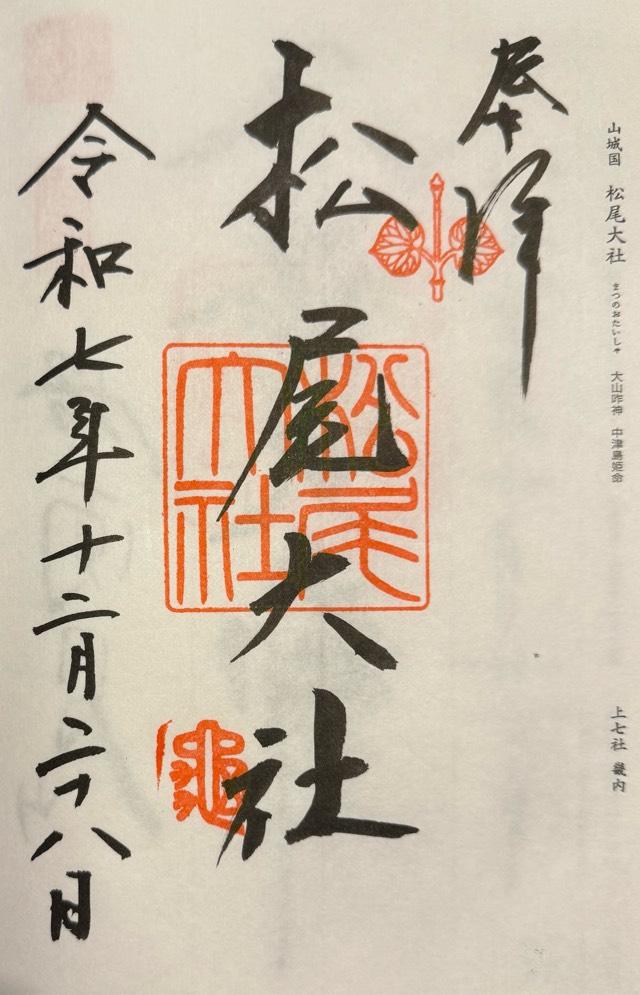 山城国 松尾大社 まつのおたいしゃ 大山咋神 中津島姫命
上七社 畿内
奉拝
松尾大社
松尾大社
亀
令和七年十二月二十八日